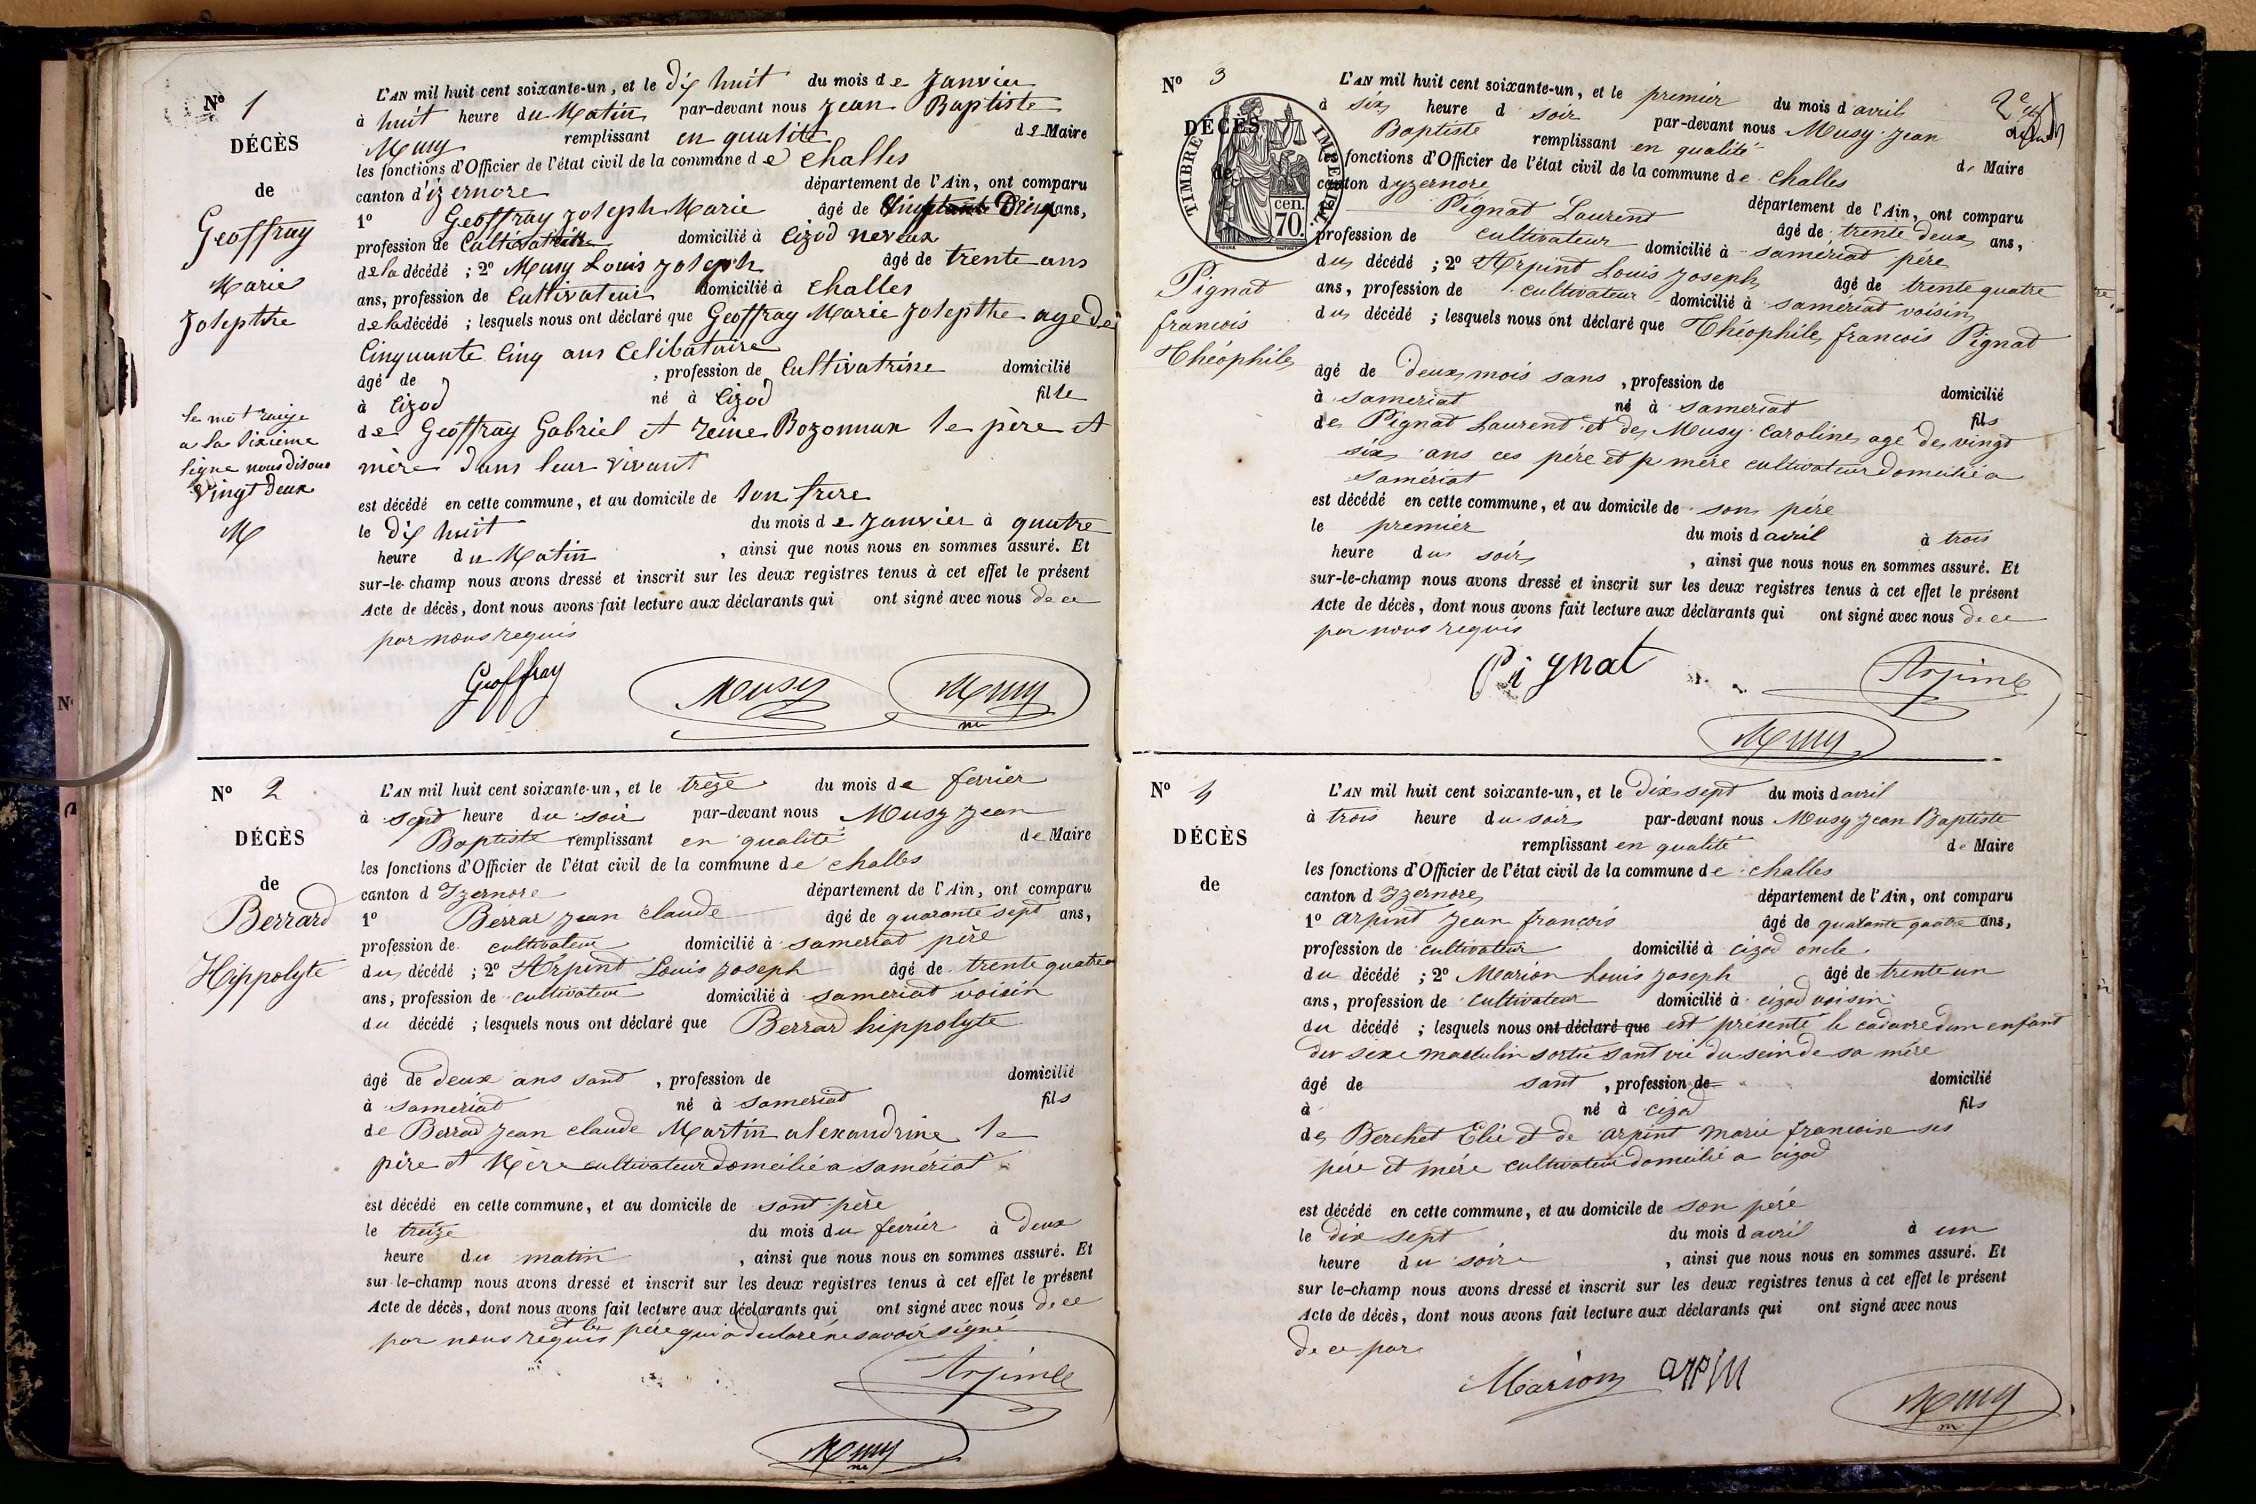 N° 1
DÉCÈS
de
Geoffray
Marie
Josepthe
le mot rayé
a la sixième
ligne nous disons
vingt deux
M
L'AN mil huit cent soixante-un, et le dix huit du mois de Janvier
à huit heure du Matin par-devant nous Jean Baptiste
Musy remplissant en qualité de Maire
les fonctions d'Officier de l'état civil de la commune de challes
canton d'izernore département de l'Ain, ont comparu
1° Geoffray Joseph Marie âgé de ans,
profession de Cultivateur domicilié à Cizod neveux
de la décédé ; 2° Musy Louis Joseph âgé de trente ans
ans, profession de Cultivateur domicilié à challes
de la décédé ; lesquels nous ont déclaré que Geoffray Marie Josepthe agé de
Cinquante Cinq ans Celibataire
âgé de , profession de Cultivatrise domicilié
à Cizod né à Cizod fille
de Geoffray Gabriel et reine Bozonnax le père et
mère dans leur vivant
est décédé en cette commune, et au domicile de son frere
le dix huit du mois de Janvier à quatre
heure du Matin , ainsi que nous nous en sommes assuré. Et
sur-le-champ nous avons dressé et inscrit sur les deux registres tenus à cet effet le présent
Acte de décès, dont nous avons fait lecture aux déclarants qui ont signé avec nous de ce
par nous requis
Geoffray Musy Musy
N° 2
DÉCÈS
de
Berrard
Hippolyte
L'AN mil huit cent soixante-un, et le treze du mois de fevrier
à sept heure du soir par-devant nous Musy Jean
Baptiste remplissant en qualité de Maire
les fonctions d'Officier de l'état civil de la commune de challes
canton d Izernore département de l'Ain, ont comparu
1° Berrar Jean claude âgé de quarante sept ans,
profession de cultivateur domicilié à sameriat père
du décédé ; 2° Arpint Louis Joseph âgé de trente quatre
ans, profession de cultivateur domicilié à sameriat voisin
du décédé ; lesquels nous ont déclaré que Berrard hippolyte
âgé de deux ans sant , profession de domicilié
à sameriat né à sameriat fils
de Berrad Jean claude Martin alexandrine le
père et Mère cultivateur domcilié a samériat
est décédé en cette commune, et au domicile de sont père
le treize du mois du fevriér à deux
heure du matin , ainsi que nous nous en sommes assuré. Et
sur-le-champ nous avons dressé et inscrit sur les deux registres tenus à cet effet le présent
Acte de décès, dont nous avons fait lecture aux déclarants qui ont signé avec nous de ce
par nous requis et le père qui a declaré ne savoir signé
Arpint
Musy
N° 3
DÉCÈS
de
TIMBRE IMPÉRIAL
70 cen.
Pignat
francois
Théophile
L'AN mil huit cent soixante-un, et le premier du mois d avril
à six heure d soir par-devant nous Musy Jean
Baptiste remplissant en qualité de Maire
les fonctions d'Officier de l'état civil de la commune de challes
canton dyzernore département de l'Ain, ont comparu
Pignat Laurent âgé de trente deux ans,
profession de cultivateur domicilié à samériat père
du décédé ; 2° Arpint Louis Joseph âgé de trente quatre
ans, profession de cultivateur domicilié à samériat voisin
du décédé ; lesquels nous ont déclaré que Théophile francois Pignat
âgé de deux mois sans , profession de domicilié
à sameriat né à sameriat fils
de Pignat Laurent et de Musy Caroline age de vingt
six ans ces père et p mère cultivateur domeilié a
samériat
est décédé en cette commune, et au domicile de son père
le premier du mois d avril à trois
heure du soir , ainsi que nous nous en sommes assuré. Et
sur-le-champ nous avons dressé et inscrit sur les deux registres tenus à cet effet le présent
Acte de décès, dont nous avons fait lecture aux déclarants qui ont signé avec nous de ce
par nous requis
Pignat Arpint
Musy
N° 4
DÉCÈS
de
L'AN mil huit cent soixante-un, et le dix sept du mois d avril
à trois heure du soir par-devant nous Musy Jean Baptiste
remplissant en qualité de Maire
les fonctions d'Officier de l'état civil de la commune de challes
canton d Izernore département de l'Ain, ont comparu
1° arpint Jean francois âgé de quarante quatre ans,
profession de cultivateur domicilié à cizod oncle
du décédé ; 2° Marion Louis Joseph âgé de trente un
ans, profession de cultivateur domicilié à cizod voisin
du décédé ; lesquels nous ont déclaré que est présenté le cadavre dun enfant
du sexe masculin sortie sant vie du sein de sa mére
âgé de sant , profession de domicilié
à né à cizod fils
de Berchet Elie et de arpint marie francoise ses
pére et mére cultivateur domeilié a cizod
est décédé en cette commune, et au domicile de son père
le dix sept du mois d avril à un
heure du soir , ainsi que nous nous en sommes assuré. Et
sur le-champ nous avons dressé et inscrit sur les deux registres tenus à cet effet le présent
Acte de décès, dont nous avons fait lecture aux déclarants qui ont signé avec nous
de ce par
Marion arpin
Musy